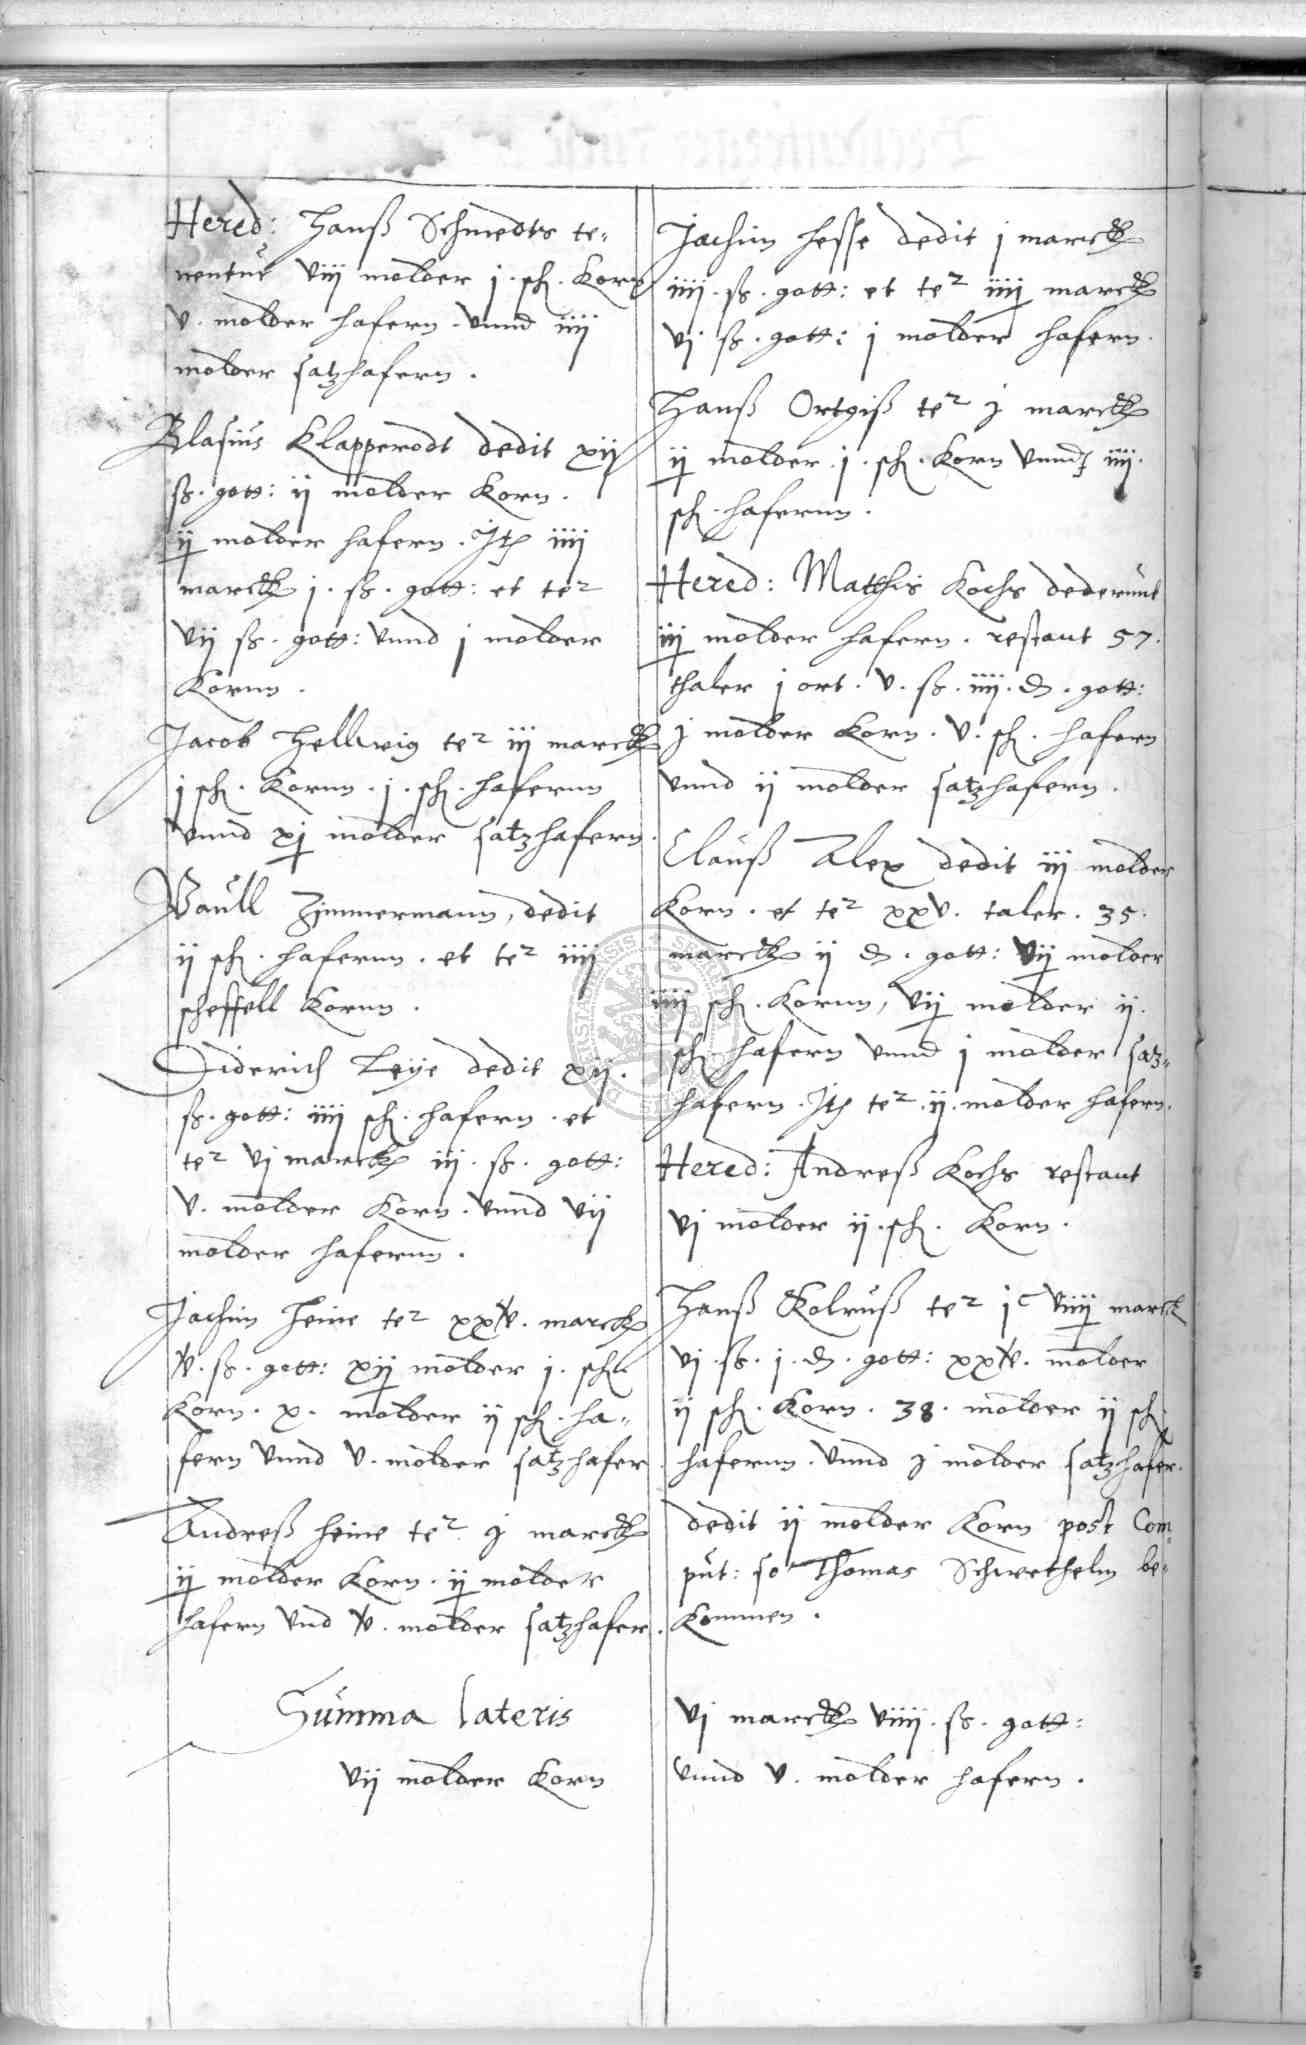 Hered: Hanß Schmedts te-
nentur viij molder j. sch. Korn
v. molder hafern. vnnd iiij
molder satzhafern.
Blasius Klapperodt dedit xij
ß. gott: ij molder Korn.
ij molder hafern. Jt iiij
marck j. ß. gott: et ter
vij ß. gott: vnnd j molder
Kornn.
Jacob Hellwig ter iij marck
j sch. Kornn. j. sch. hafernn
vnnd xj molder satzhafern.
Paull Zimmermann, dedit
ij sch. hafernn. et ter iiij
scheffell Kornn.
Diderich Leye dedit xij.
ß. gott: iiij sch. hafern. et
ter vj marck iij. ß. gott:
v. molder Korn. vnnd vij
molder hafernn.
Jachim Heine ter xxv. marck
v. ß. gott: xij molder j. sch.
Korn. x. molder ij sch. ha-
fern vnnd v. molder satzhafer.
Andreß Heine ter j marck
ij molder Korn. ij molder
hafern vnd v. molder satzhafer.
Summa lateris
vij molder Korn
Jachim Hesse dedit j marck
iiij. ß. gott: et ter iiij marck
vj ß. gott: j molder hafern.
Hanß Ortgiß ter j marck
ij molder. j. sch. Korn vnnd iiij.
sch. hafernn.
Hered: Matthis Kochs dederunt
iij molder hafern. restant 57.
thaler j ort. v. ß. iiij. d. gott:
j molder Korn. v. sch. hafern
vnnd ij molder satzhafern.
Clauß Alex dedit iij molder
Korn. et ter xxv. taler. 35.
marck ij d. gott: vij molder
iiij sch. Kornn, vij molder ij.
sch. hafern vnnd j molder satz-
hafern. Jt ter. ij. molder hafern.
Hered: Andreß Kochs restant
vj molder ij. sch. Korn.
Hanß Kolruß ter jc viiij marck
vj. ß. j. d. gott: xxv. molder
ij sch. Korn. 38. molder ij sch.
hafernn. vnnd j molder satzhafer.
dedit ij molder Korn post Com-
put: so Thomas Schwethelm be-
Kommen.
vj marck viiij. ß. gott:
vnnd v. molder hafern.